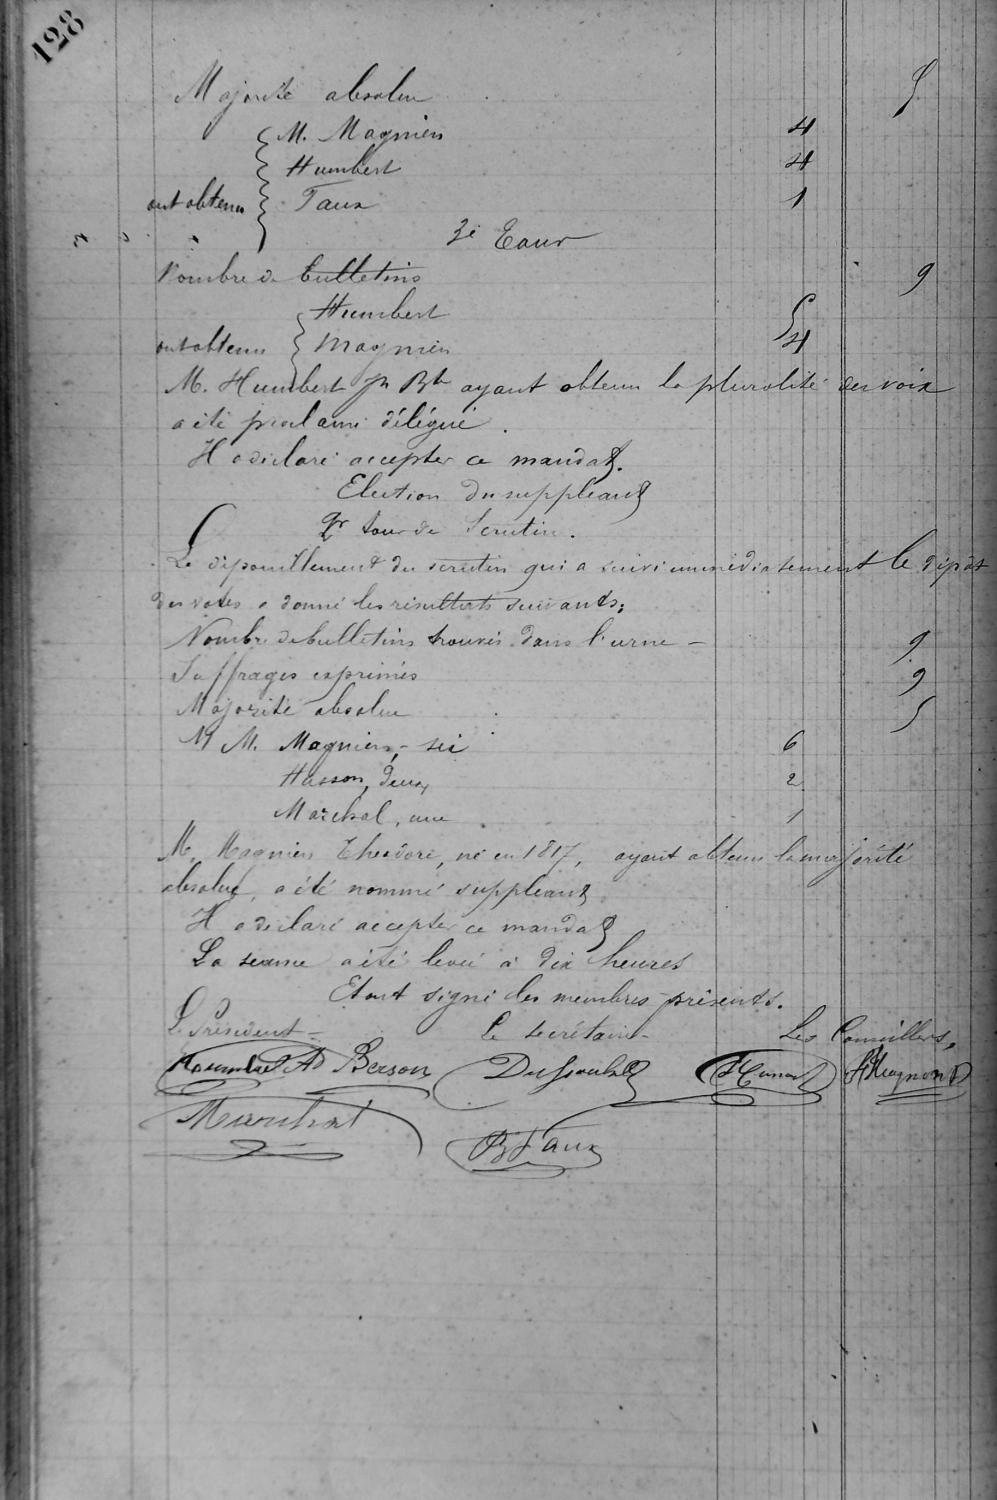 128
Majorité absolue 5
M. Magnien 4
Humbert 4
ont obtenu Taux 1
3e Tour
Nombre de bulletins 9
Humbert 5
ont obtenu Magnien 4
M. Humbert Jn Bte ayant obtenu la pluralité des voix
a été proclamé délégué.
Il a déclaré accepter ce mandat.
Election du suppléant
1er tour de Scrutin.
Le dépouillement du scrutin qui a suivi immédiatement le dépôt
des votes a donné les résultats suivants:
Nombre de bulletins trouvés dans l'urne - 9
Suffrages exprimés 9
Majorité absolue 5
MM. Magnien, - six 6
Husson, deux 2
Maréchal, une 1
M. Magnien Théodore, né en 1817, ayant obtenu la majorité
absolue, a été nommé suppléant
Il a déclaré accepter ce mandat
La séance a été levée à dix heures
Et ont signé les membres présents.
Le Président - Le secrétaire - Les Conseillers,
Berson
Marchal
Taux